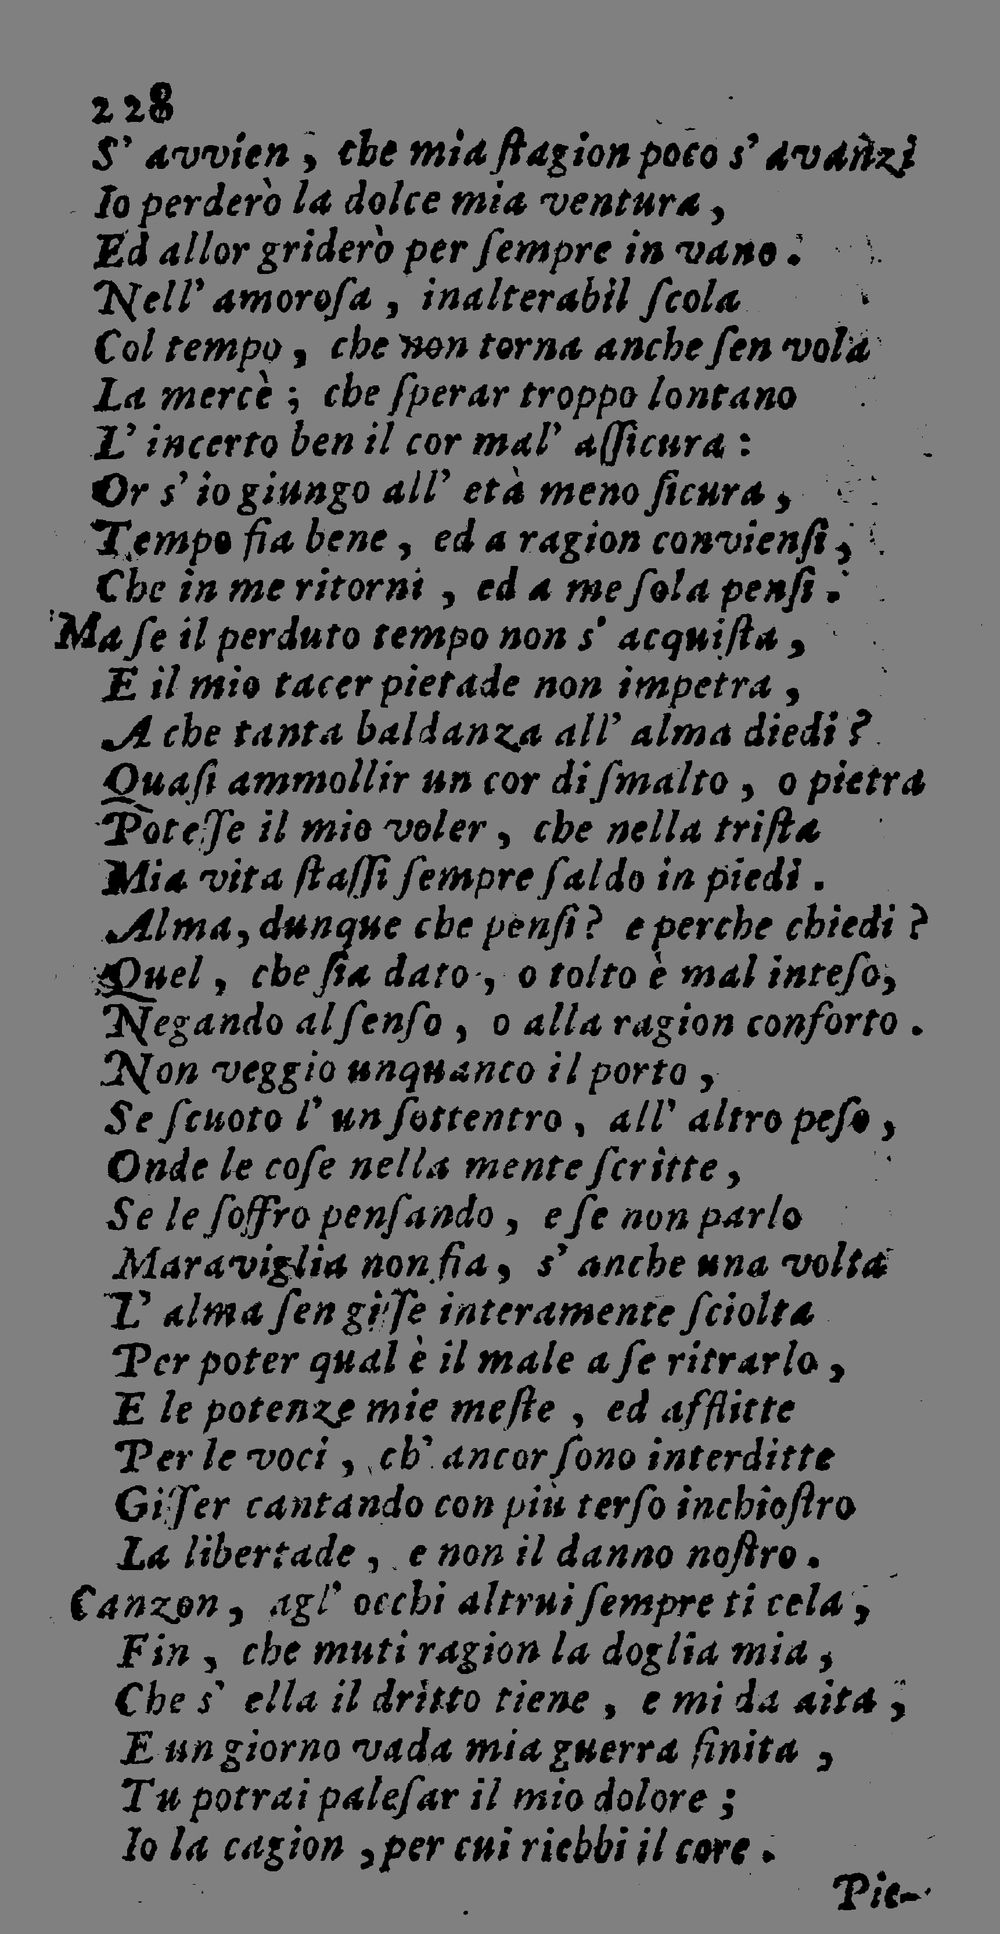 228
S' avvien, che mia ſtagion poco s' avanzi
Io perderò la dolce mia ventura,
Ed allor griderò per ſempre in vano.
Nell' amoroſa, inalterabil ſcola
Col tempo, che non torna anche ſen vola
La mercè; che ſperar troppo lontano
L' incerto ben il cor mal' aſſicura:
Or s' io giungo all' età meno ſicura,
Tempo fia bene, ed a ragion convienſi,
Che in me ritorni, ed a me ſola penſi.
Ma ſe il perduto tempo non s' acquiſta,
E il mio tacer pietade non impetra,
A che tanta baldanza all' alma diedi?
Quaſi ammollir un cor di ſmalto, o pietra
Poteſſe il mio voler, che nella triſta
Mia vita ſtaſſi ſempre ſaldo in piedi.
Alma, dunque che penſi? e perche chiedi?
Quel, che ſia dato, o tolto è mal inteſo,
Negando al ſenſo, o alla ragion conforto.
Non veggio unquanco il porto,
Se ſcuoto l' un ſottentro, all' altro peſo,
Onde le coſe nella mente ſcritte,
Se le ſoffro penſando, e ſe non parlo
Maraviglia non fia, s' anche una volta
L' alma ſen giſſe interamente ſciolta
Per poter qual è il male a ſe ritrarlo,
E le potenze mie meſte, ed afflitte
Per le voci, ch' ancor ſono interditte
Giſſer cantando con più terſo inchioſtro
La libertade, e non il danno noſtro.
Canzon, agl' occhi altrui ſempre ti cela,
Fin, che muti ragion la doglia mia,
Che s' ella il dritto tiene, e mi da aita,
E un giorno vada mia guerra finita,
Tu potrai paleſar il mio dolore;
Io la cagion, per cui riebbi il core.
Pie-